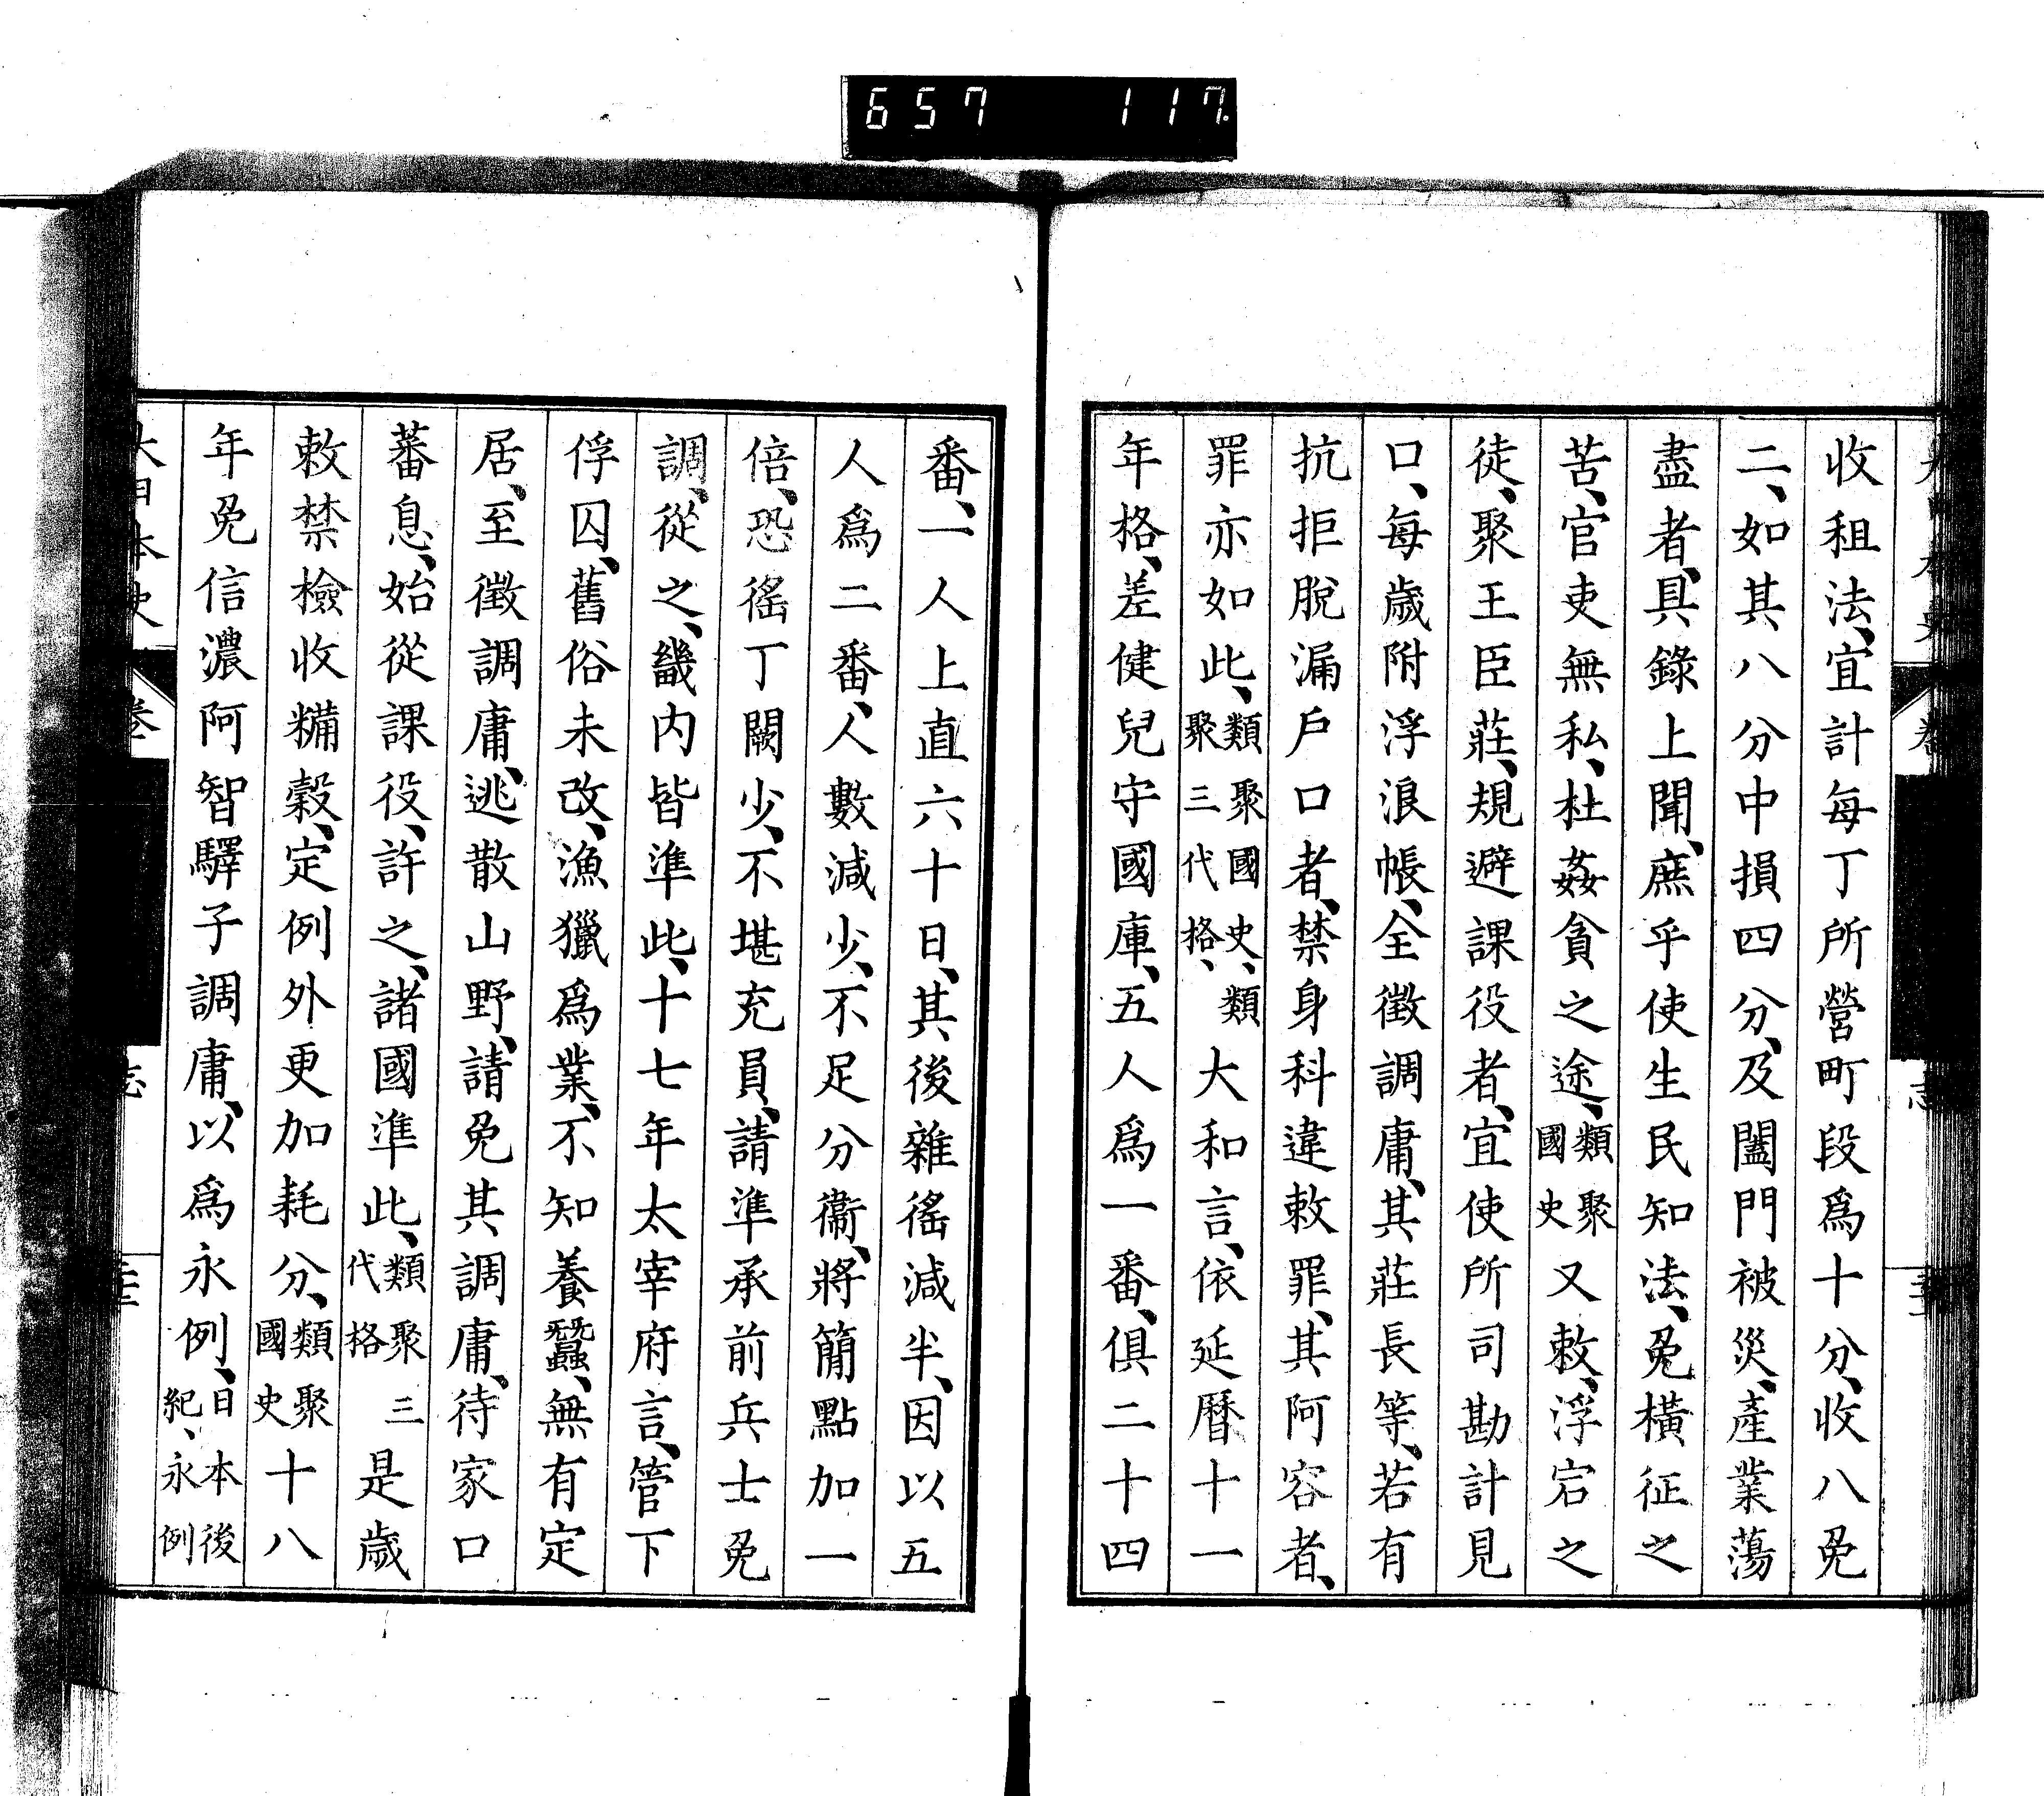 657 117
收租法、宜計每丁所營町段爲十分、收八免
二、如其八分中損四分、及闔門被災、產業蕩
盡者、具錄上聞、庶乎使生民知法、免橫征之
苦、官吏無私、杜姦貪之途、類聚國史又敕、浮宕之
徒、聚王臣莊、規避課役者、宜使所司勘計見
口、每歲附浮浪帳、全徵調庸、其莊長等、若有
抗拒脫漏戶口者、禁身科違敕罪、其阿容者、
罪亦如此、類聚國史、類聚三代格、大和言、依延曆十一
年格、差健兒守國庫、五人爲一番、俱二十四
番、一人上直六十日、其後雜徭減半、因以五
人爲二番、人數減少、不足分衞、將簡點加一
倍、恐徭丁闕少、不堪充員、請準承前兵士免
調、從之、畿内皆準此、十七年太宰府言、管下
俘囚、舊俗未改、漁獵爲業、不知養蠶、無有定
居、至徵調庸、逃散山野、請免其調庸、待家口
蕃息、始從課役、許之、諸國準此、類聚三代格是歲
敕禁檢收糒穀、定例外更加耗分、類聚國史十八
年免信濃阿智驛子調庸、以爲永例、日本後紀、永例
大日本史
卷
志